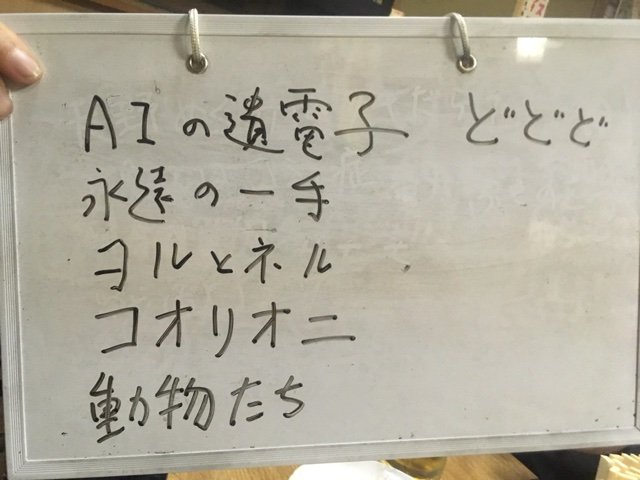 AIの遺電子 どどど
永遠の一手
ヨルとネル
コオリオニ
動物たち